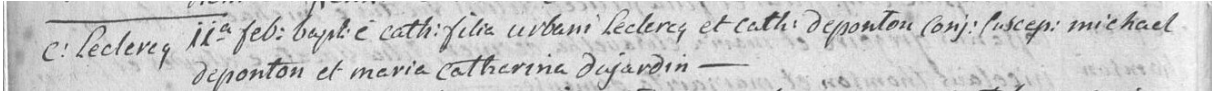 C: Leclercq 11a feb: bapt: ē cath: filia urbani Leclercq et cath: deponton conj: suscep: michael
deponton et maria catharina dujardin —